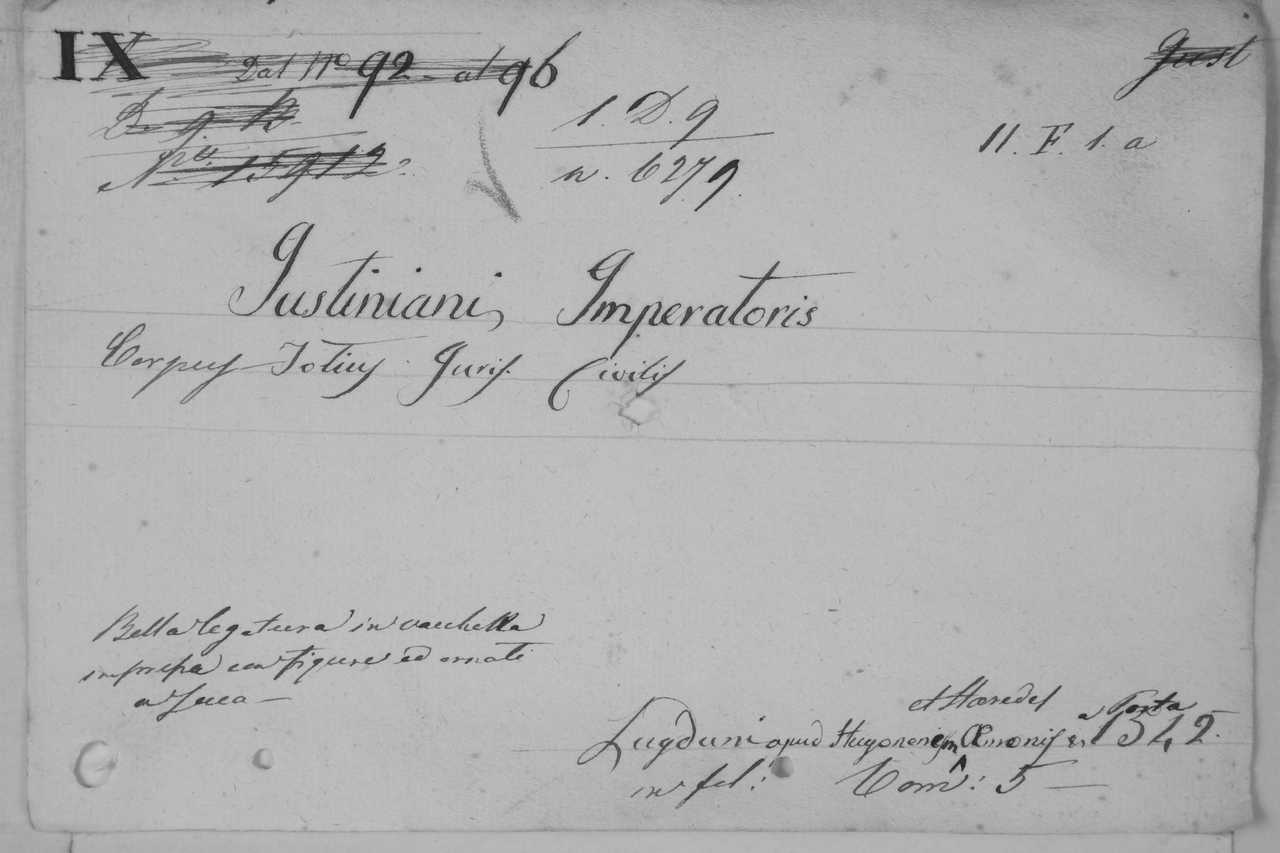 IX Dal Nº 92 al 96
Just
D. g. B.
1. D. 9
11. F. 1. a
Nro. 15912.
n. 6279
Justiniani, Imperatoris
Corpus Totius Juris Civilis
Bella legatura in vacchetta
impressa con figure ed ornati
a secco —
et Hæredes a Porta
Lugduni apud Hugonem Æmonis 1542.
in fol: Tom: 5 —